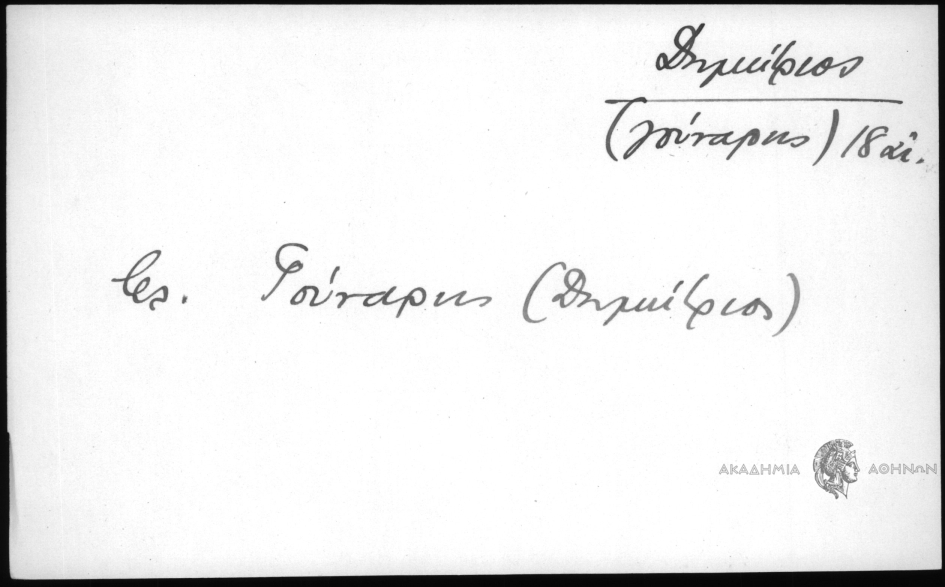 Δημήτριος
(γούναρης) 18 αἰ.
Βλ. Γούναρης (Δημήτριος)
ΑΚΑΔΗΜΙΑ ΑΘΗΝΩΝ